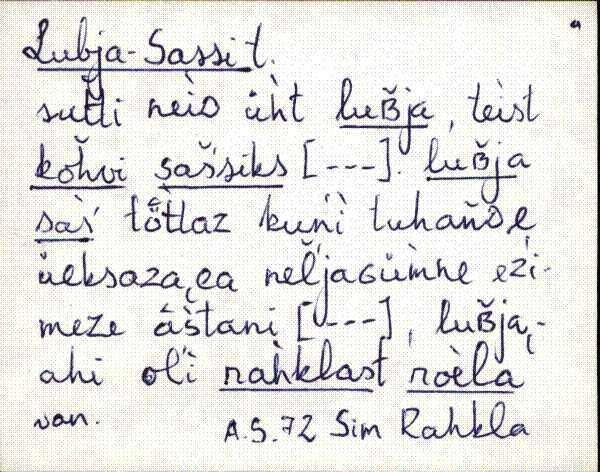 Lubja-Sassi t.
sutti nèiᴅ ǜht luʙ̆ja, tèist
koh̆vi sas̆siks [---]. luʙ̆ja
sas̀ tö̀tlaz kuńì tuhanᴅe̮
ǜeksaza̮ea nel̆jaɢǜmne ezi-
meze àštani [---], luʙ̆ja̮-
ahi ol'ì ràhklast roèla
van. A.S.72 Sim Rahkla